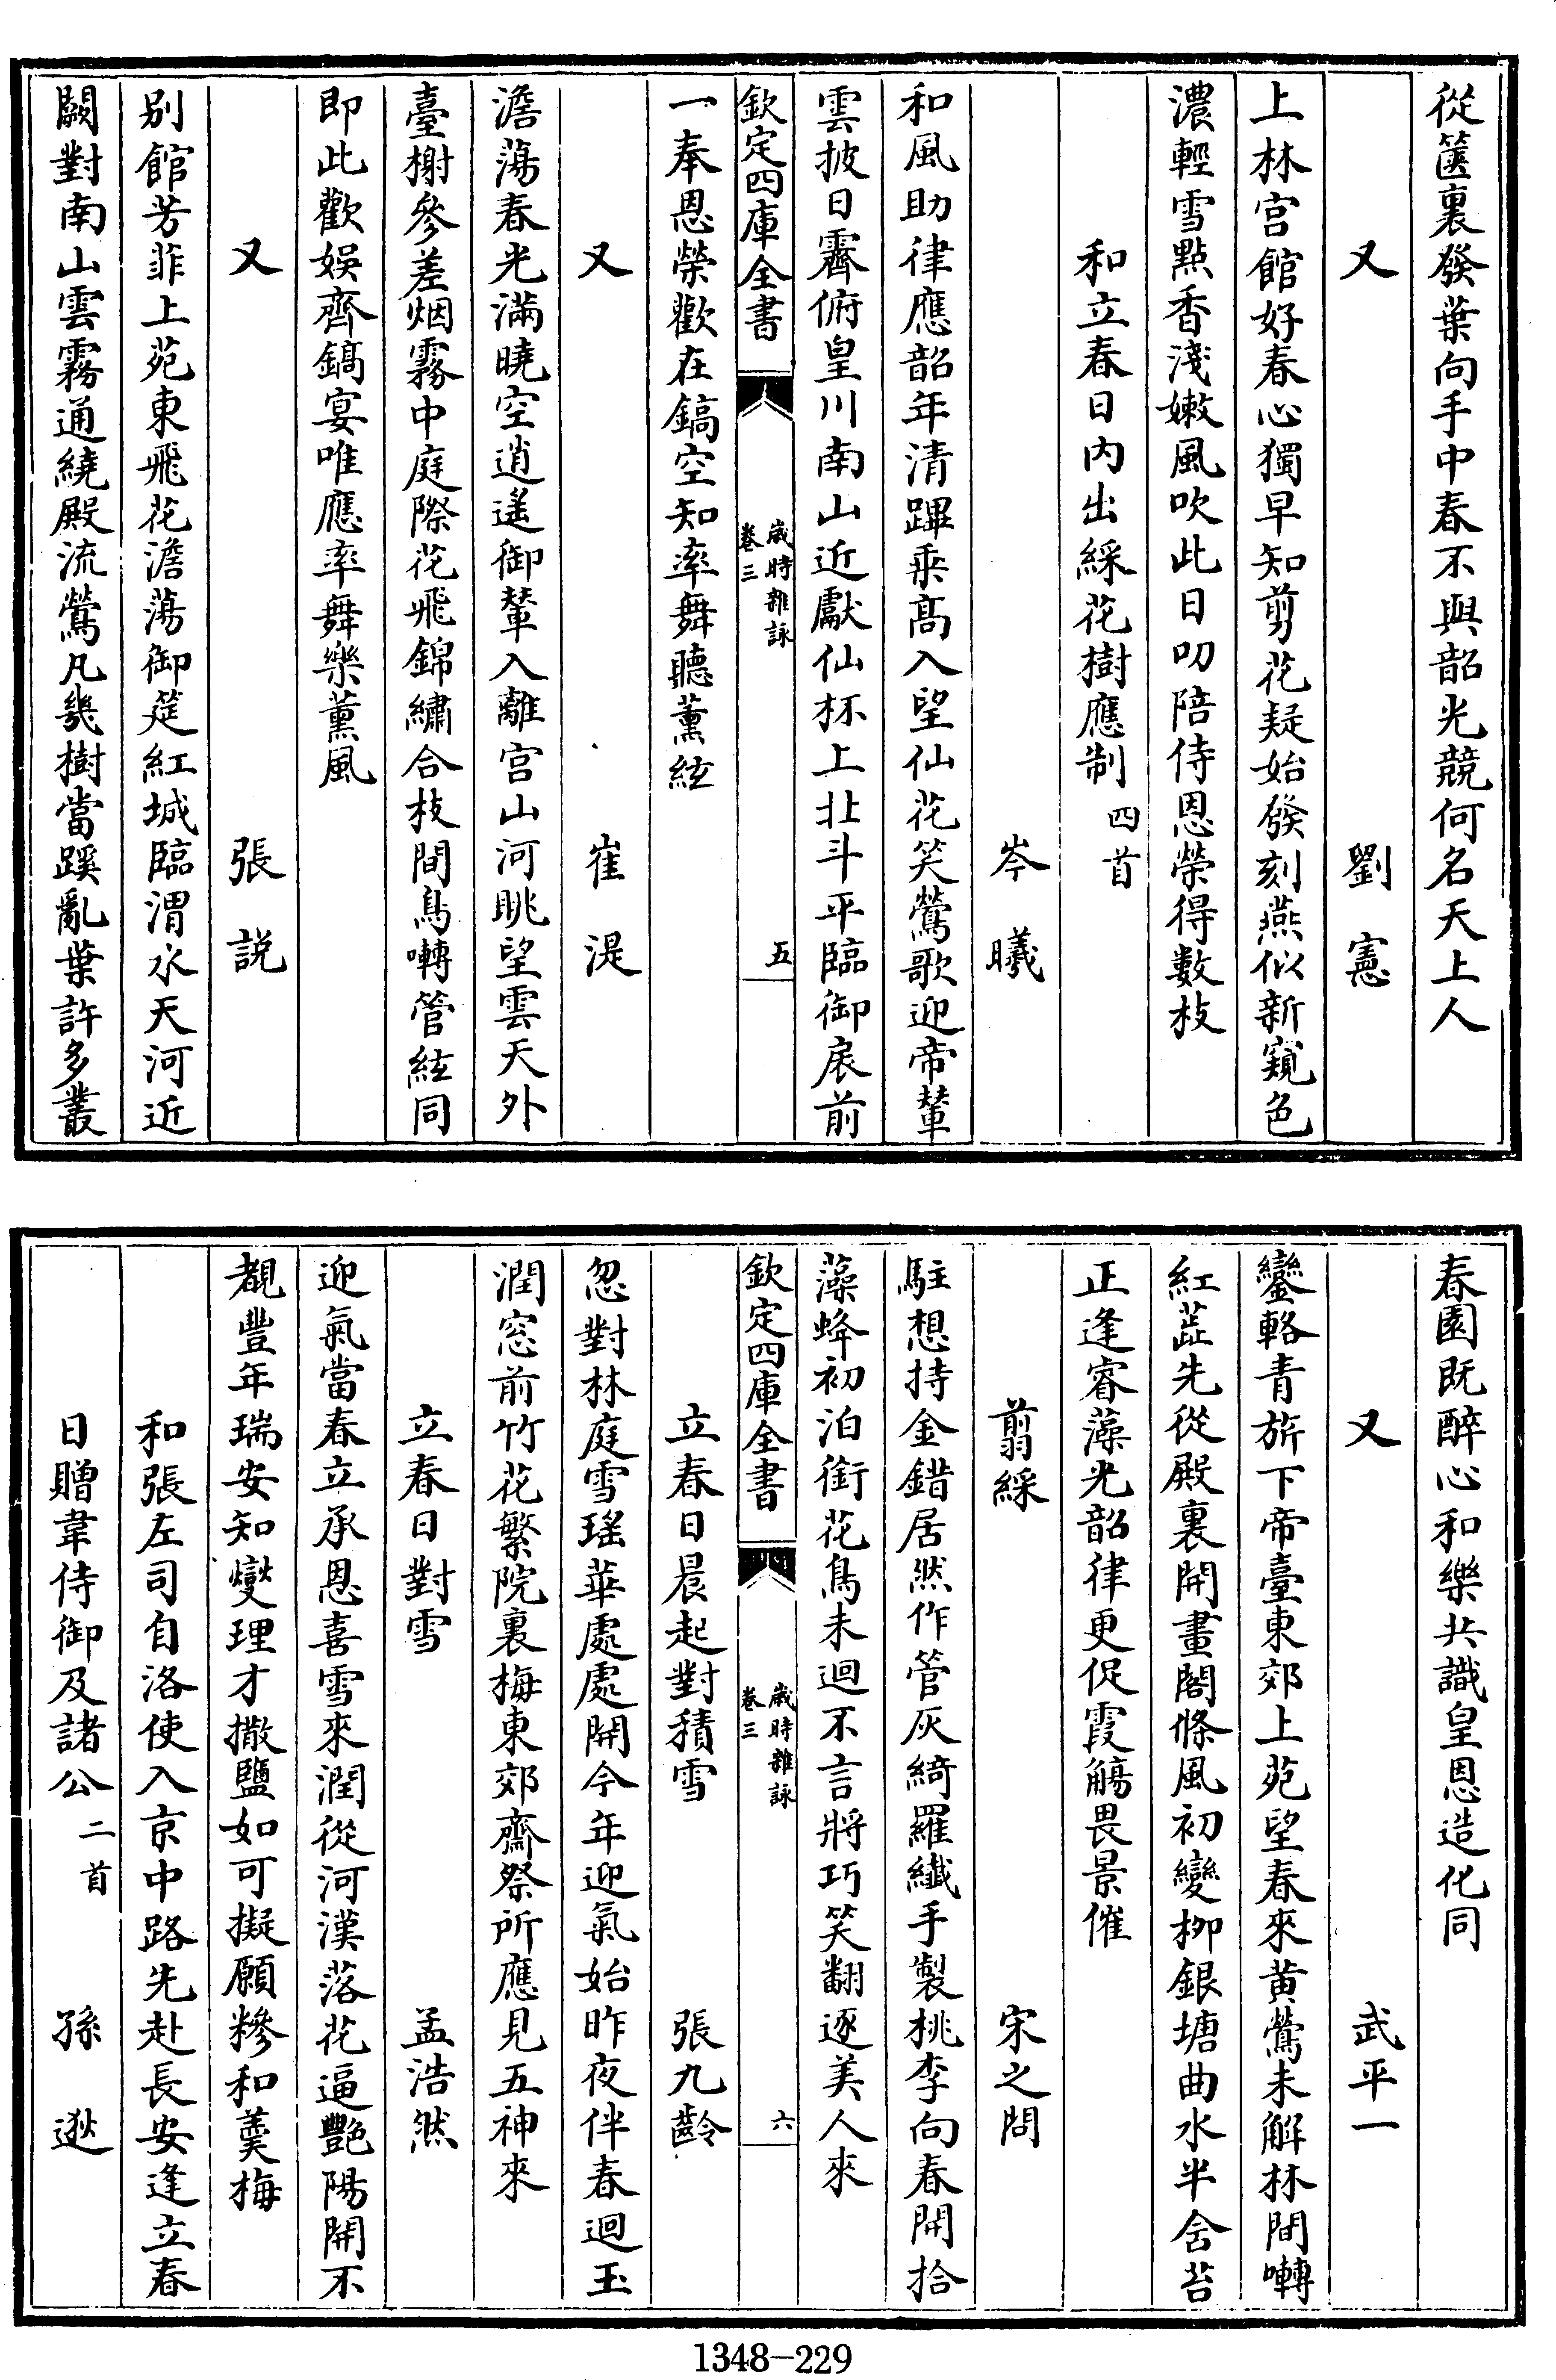 從篋裏發葉向手中春不與韶光競何名天上人
又　劉憲
上林宫館好春心獨早知剪花疑始發刻燕似新窺色
濃輕雪點香淺嫩風吹此日叨陪侍恩榮得數枝
和立春日内出綵花樹應制四首
岑曦
和風助律應韶年清蹕乘髙入望仙花笑鶯歌迎帝輦
雲披日霽俯皇川南山近獻仙杯上北斗平臨御扆前
欽定四庫全書　歳時雜詠　卷三　五
一奉恩榮歡在鎬空知率舞聽薰絃
又　崔湜
澹蕩春光滿曉空逍遥御輦入離宫山河眺望雲天外
臺榭參差烟霧中庭際花飛錦繡合枝間鳥囀管絃同
即此歡娱齊鎬宴唯應率舞樂薰風
又　張説
别館芳菲上苑東飛花澹蕩御筵紅城臨渭水天河近
闕對南山雲霧通繞殿流鶯凡幾樹當蹊亂葉許多叢
春園既醉心和樂共識皇恩造化同
又　武平一
鑾輅青旂下帝臺東郊上苑望春來黄鶯未解林間囀
紅蘂先從殿裏開畫閣條風初變栁銀塘曲水半含苔
正逢睿藻光韶律更促霞觴畏景催
翦綵　宋之問
駐想持金錯居然作管灰綺羅纎手製桃李向春開拾
藻蜂初泊銜花鳥未迴不言將巧笑翻逐美人來
欽定四庫全書　歳時雜詠　卷三　六
立春日晨起對積雪　張九齡
忽對林庭雪瑶華處處開今年迎氣始昨夜伴春迴玉
潤窓前竹花繁院裏梅東郊齋祭所應見五神來
立春日對雪　孟浩然
迎氣當春立承恩喜雪來潤從河漢落花逼艷陽開不
覩豐年瑞安知燮理才撒鹽如可擬願糝和羮梅
和張左司自洛使入京中路先赴長安逢立春
日贈韋侍御及諸公二首　孫逖
1348-229